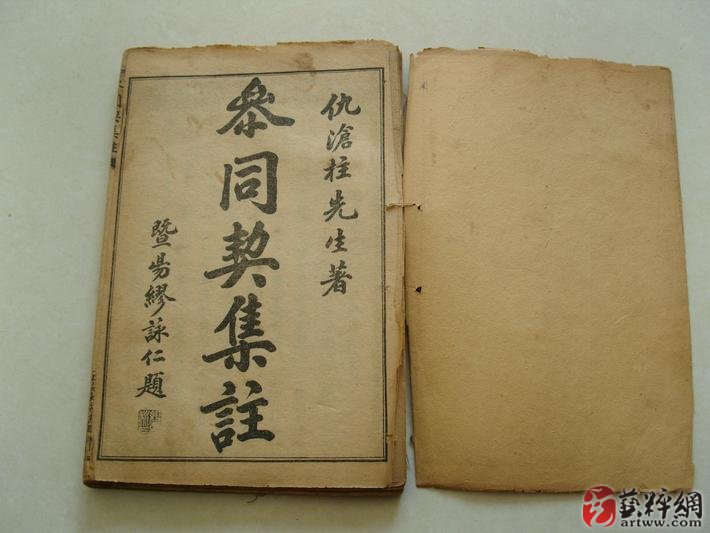 仇滄柱先生著
叅同契集註
暨昜繆詠仁題
藝粹網
artww.com